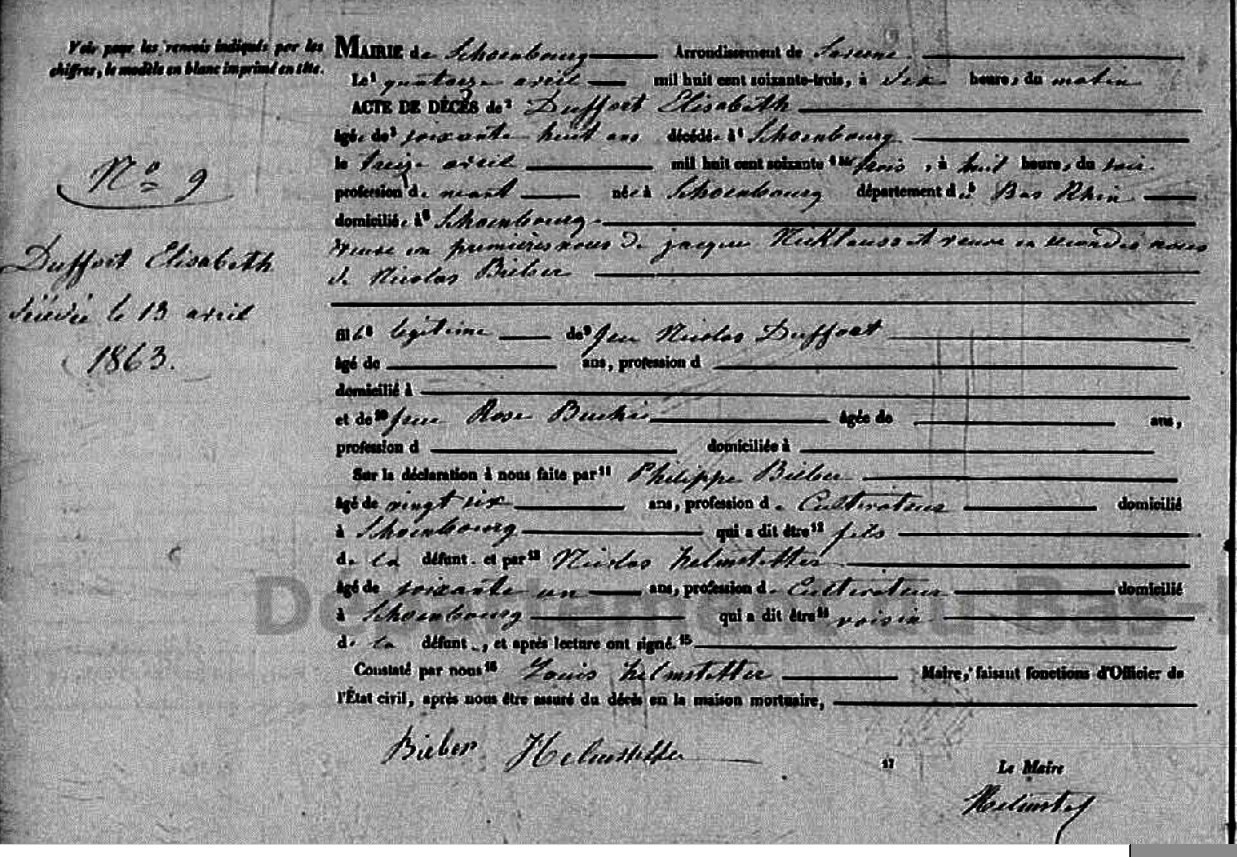 Voir pour les renvois indiqués par les
chiffres, le modèle en blanc imprimé en tête.
Nº 9
Duffort Elisabeth
décédée le 13 avril
1863.
MAIRIE de Schoenbourg Arrondissement de Saverne
Le¹ quatorze avril mil huit cent soixante-trois, à Six heures du matin
ACTE DE DÉCÈS de² Duffort Elisabeth
âgée de³ soixante huit ans décédée à⁴ Schoenbourg
le treize avril mil huit cent soixante trois, à huit heures du soir
profession de née à Schoenbourg département du Bas Rhin
domiciliée à⁶ Schoenbourg
veuve en premières noces de jacques Nicklauss et veuve en secondes noces
de Nicolas Bieber
fille⁸ legitime de⁹ feu Nicolas Duffort
âgé de ans, profession d
domicilié à
et de¹⁰ feue Rose âgée de ans,
profession d domiciliée à
Sur la déclaration à nous faite par¹¹ Philippe Bieber
âgé de vingt six ans, profession de Cultivateur domicilié
à Schoenbourg qui a dit être¹² fils
de la défunte et par¹³ Nicolas helmstetter
âgé de soixante un ans, profession de Cultivateur domicilié
à Schoenbourg qui a dit être¹⁴ voisin
de la défunte, et après lecture ont signé.¹⁵
Constaté par nous¹⁶ Louis helmstetter Maire, faisant fonctions d'Officier de
l'État civil, après nous être assuré du décès en la maison mortuaire,
Bieber Helmstetter
17 Le Maire